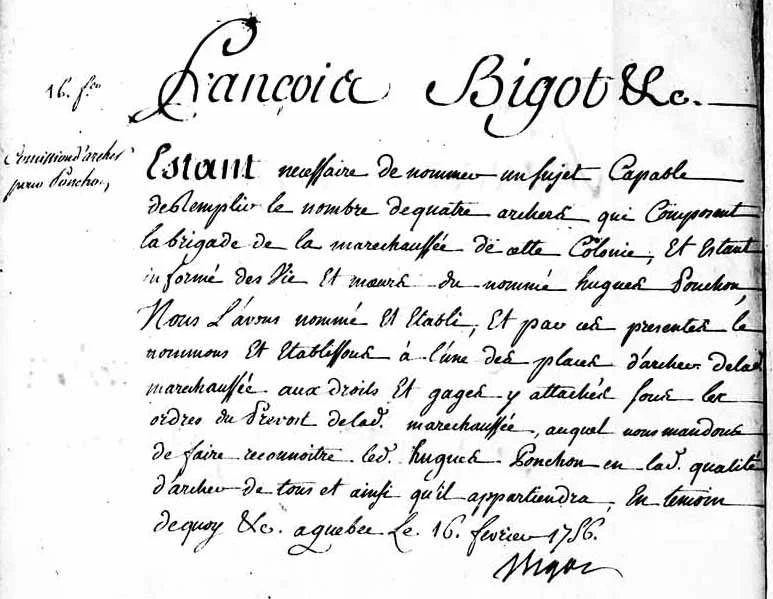 16. fev.
François Bigot &c.
Commission d'archer
pour Ponchon
Estant necessaire de nommer un sujet Capable
de Remplir le nombre de quatre archers qui Composent
la brigade de la marechaussée de cette Colonie, Et Estant
informé des Vie Et mœurs du nommé hugues Ponchon,
Nous L'avons nommé Et Etabli, Et par ces presentes le
nommons Et Etablissons à l'une des places d'archer delad.
marechaussée aux droits Et gages y attachés sous les
ordres du Prevost delad. marechaussée, auquel nous mandons
de faire reconnoitre led. hugues Ponchon en lad. qualité
d'archer de tous et ainsi qu'il appartiendra, En temoin
dequoy &c. a quebec Le 16. fevrier 1756.
Bigot